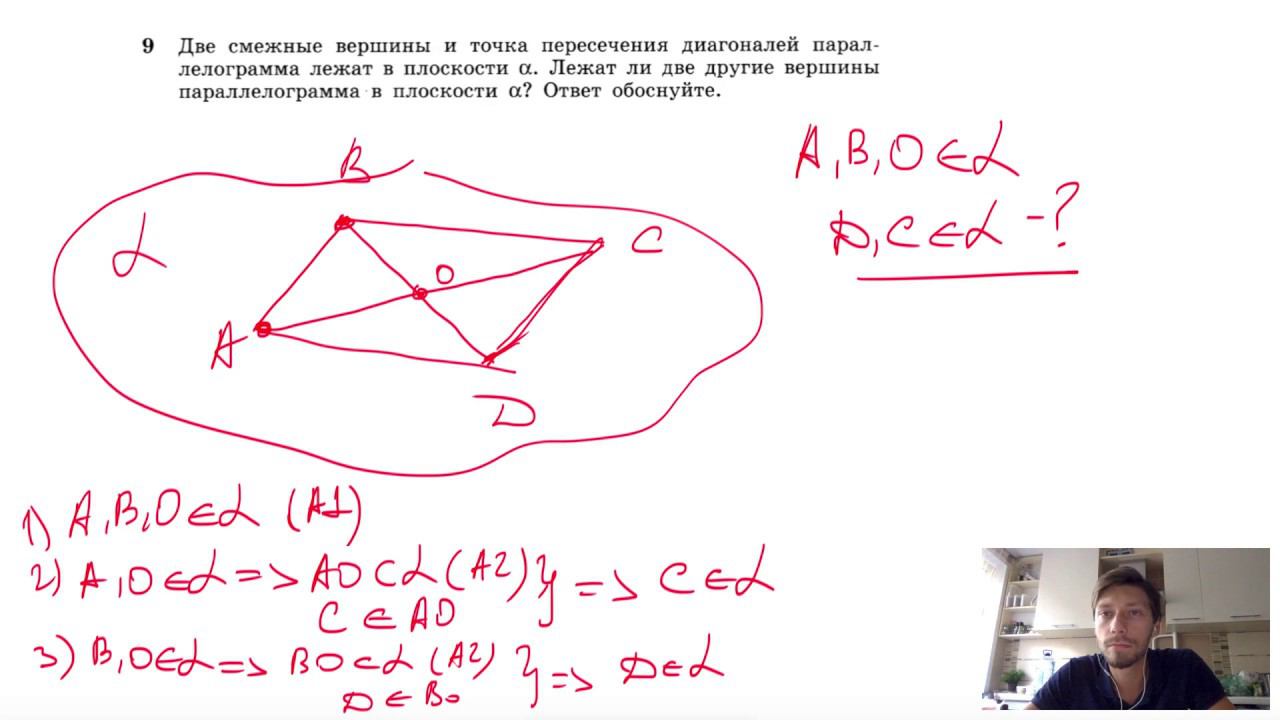 9 Две смежные вершины и точка пересечения диагоналей парал-
лелограмма лежат в плоскости α. Лежат ли две другие вершины
параллелограмма в плоскости α? Ответ обоснуйте.
A, B, O ∈ α
D, C ∈ α - ?
α
B
C
O
A
D
1) A, B, O ∈ α (A1)
2) A, O ∈ α => AO ⊂ α (A2) } => C ∈ α
C ∈ AO
3) B, O ∈ α => BO ⊂ α (A2) } => D ∈ α
D ∈ BO